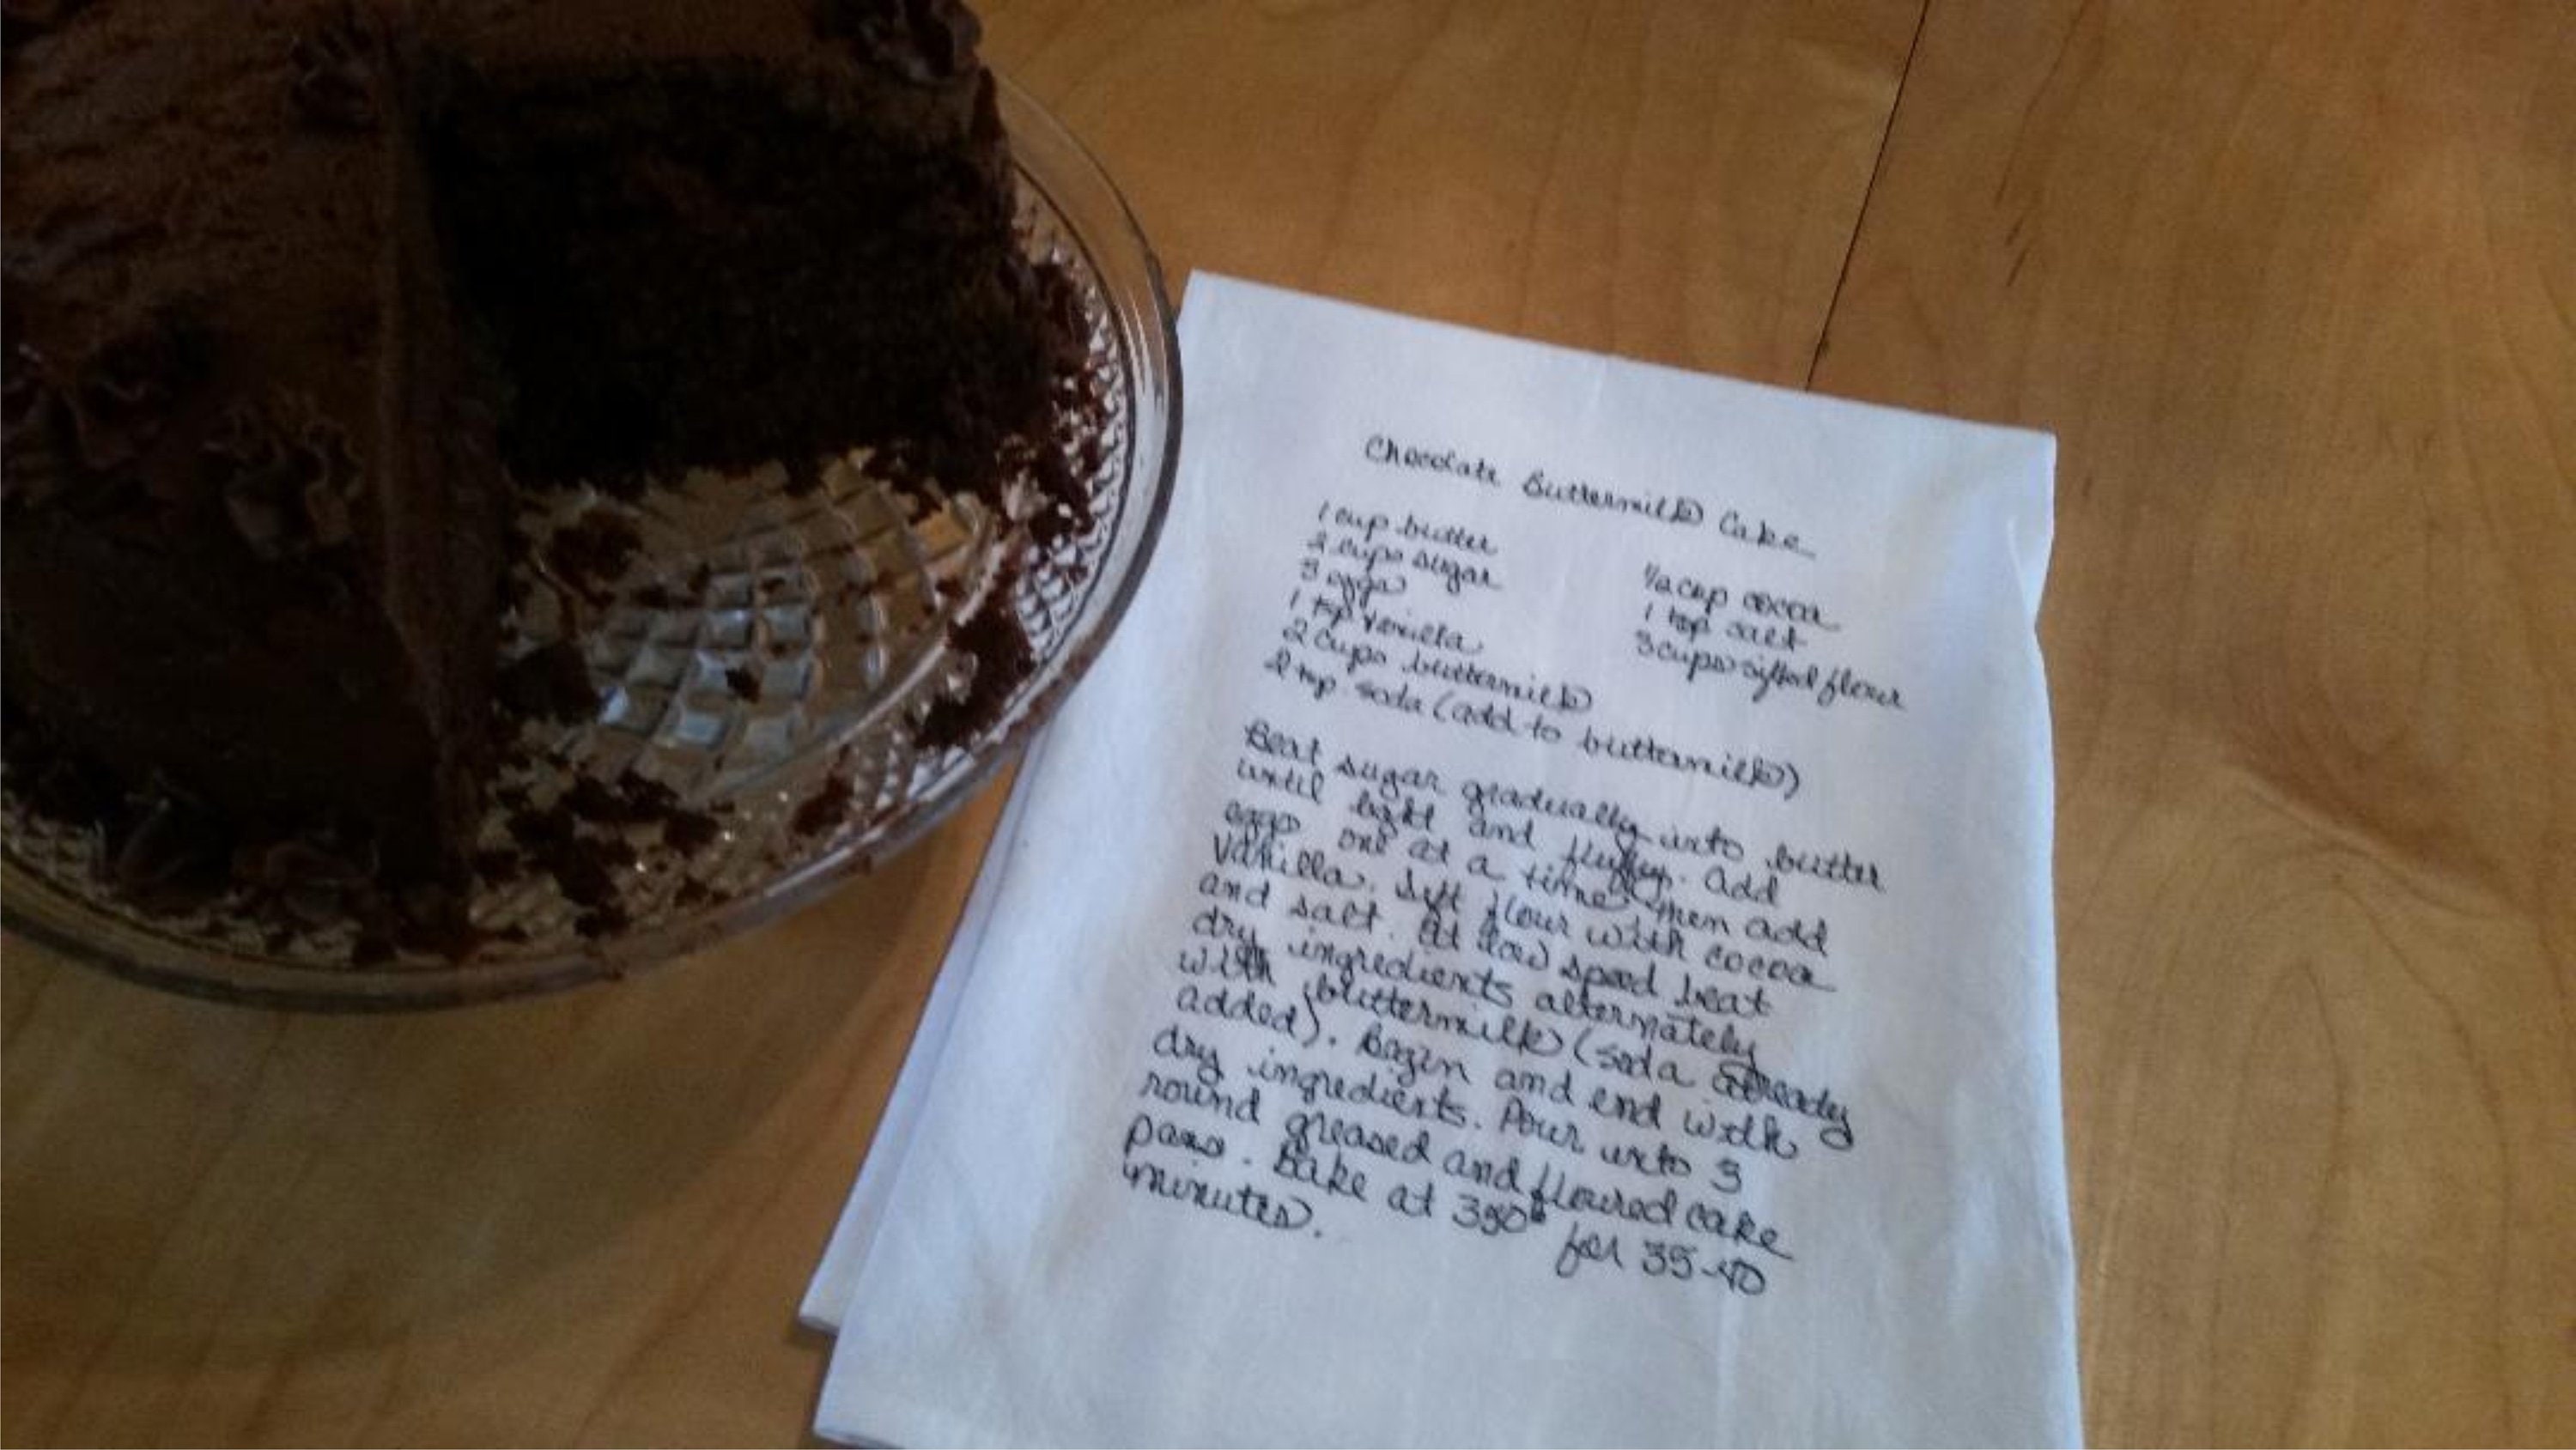 Chocolate Buttermilk Cake
1 cup butter
2 cups sugar
3 eggs
1 tsp vanilla
2 cups buttermilk
2 tsp soda (add to buttermilk)
1/2 cup cocoa
1 tsp salt
3 cups sifted flour
Beat sugar gradually into butter
until light and fluffy. Add
eggs one at a time then add
vanilla. Sift flour with cocoa
and salt. At low speed beat
dry ingredients alternately
with buttermilk (soda already
added). Begin and end with
dry ingredients. Pour into 3
round greased and floured cake
pans. Bake at 350° for 35-40
minutes.